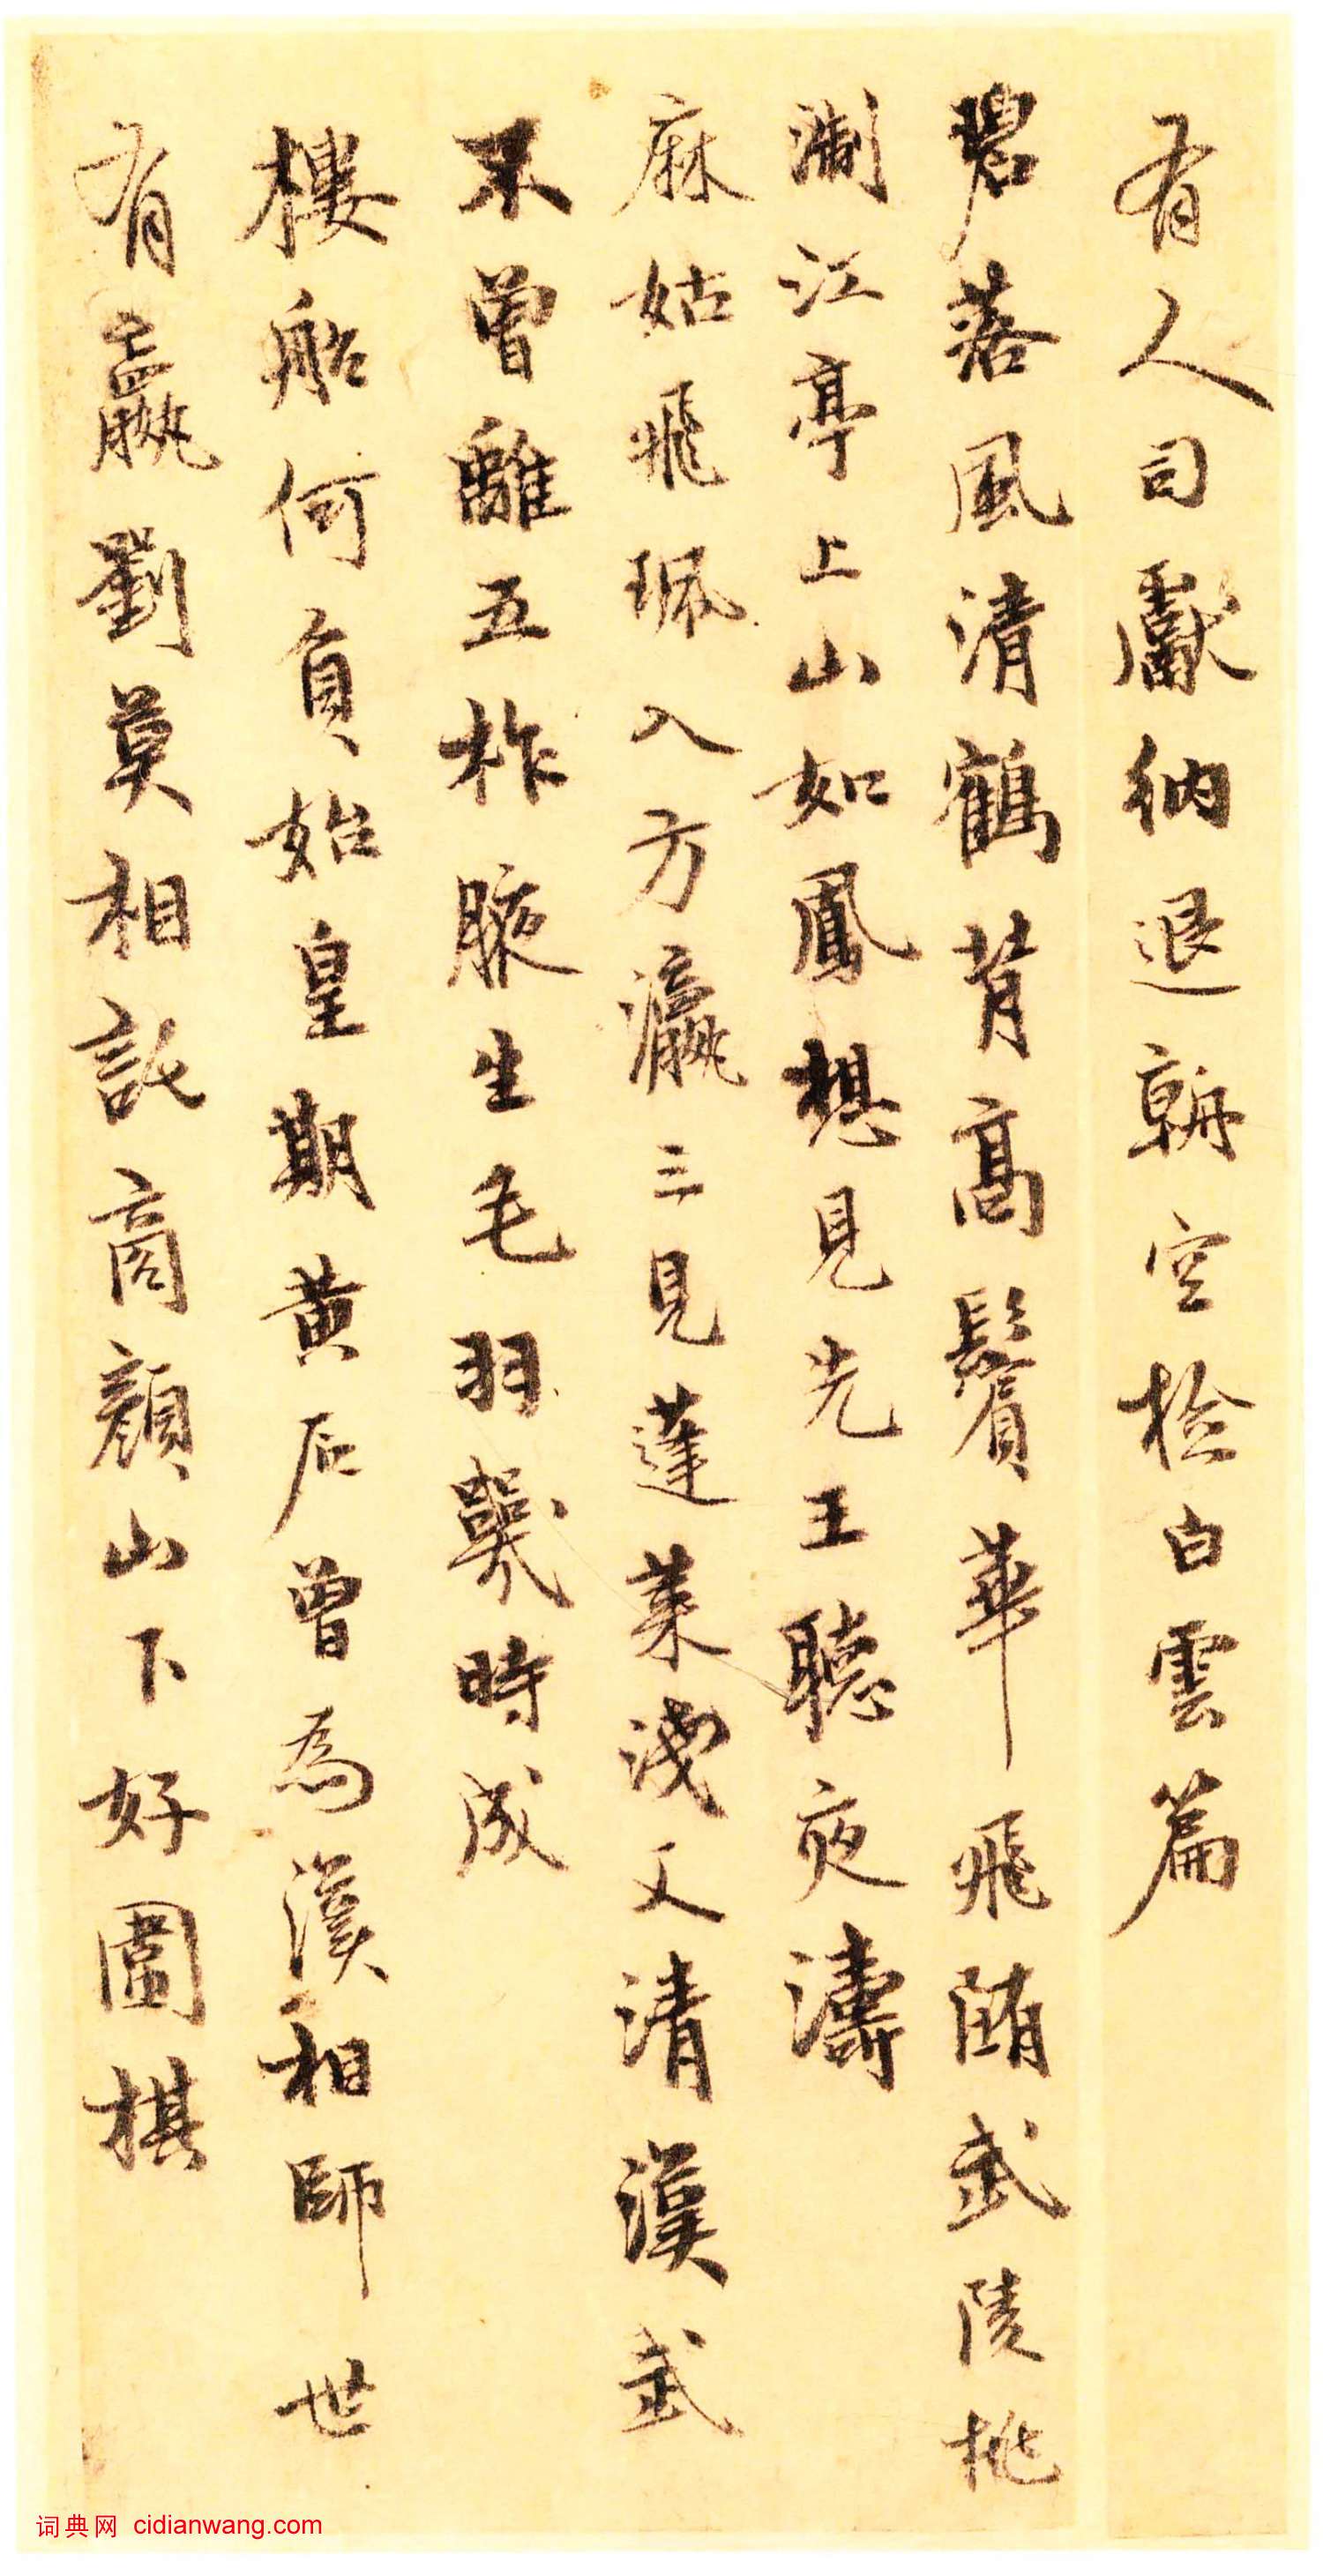 有人司獻納退朝空檢白雲篇
碧落風清鶴背高鬢華飛滿武陵桃
淛江亭上山如鳳想見先王聽夜濤
麻姑飛珮入方瀛三見蓬萊淺又清漢武
不曾離五柞腋生毛羽幾時成
樓船何負始皇期黃石曾為漢相師世
有嬴劉莫相託商顏山下好圍棋
词典网 cidianwang.com